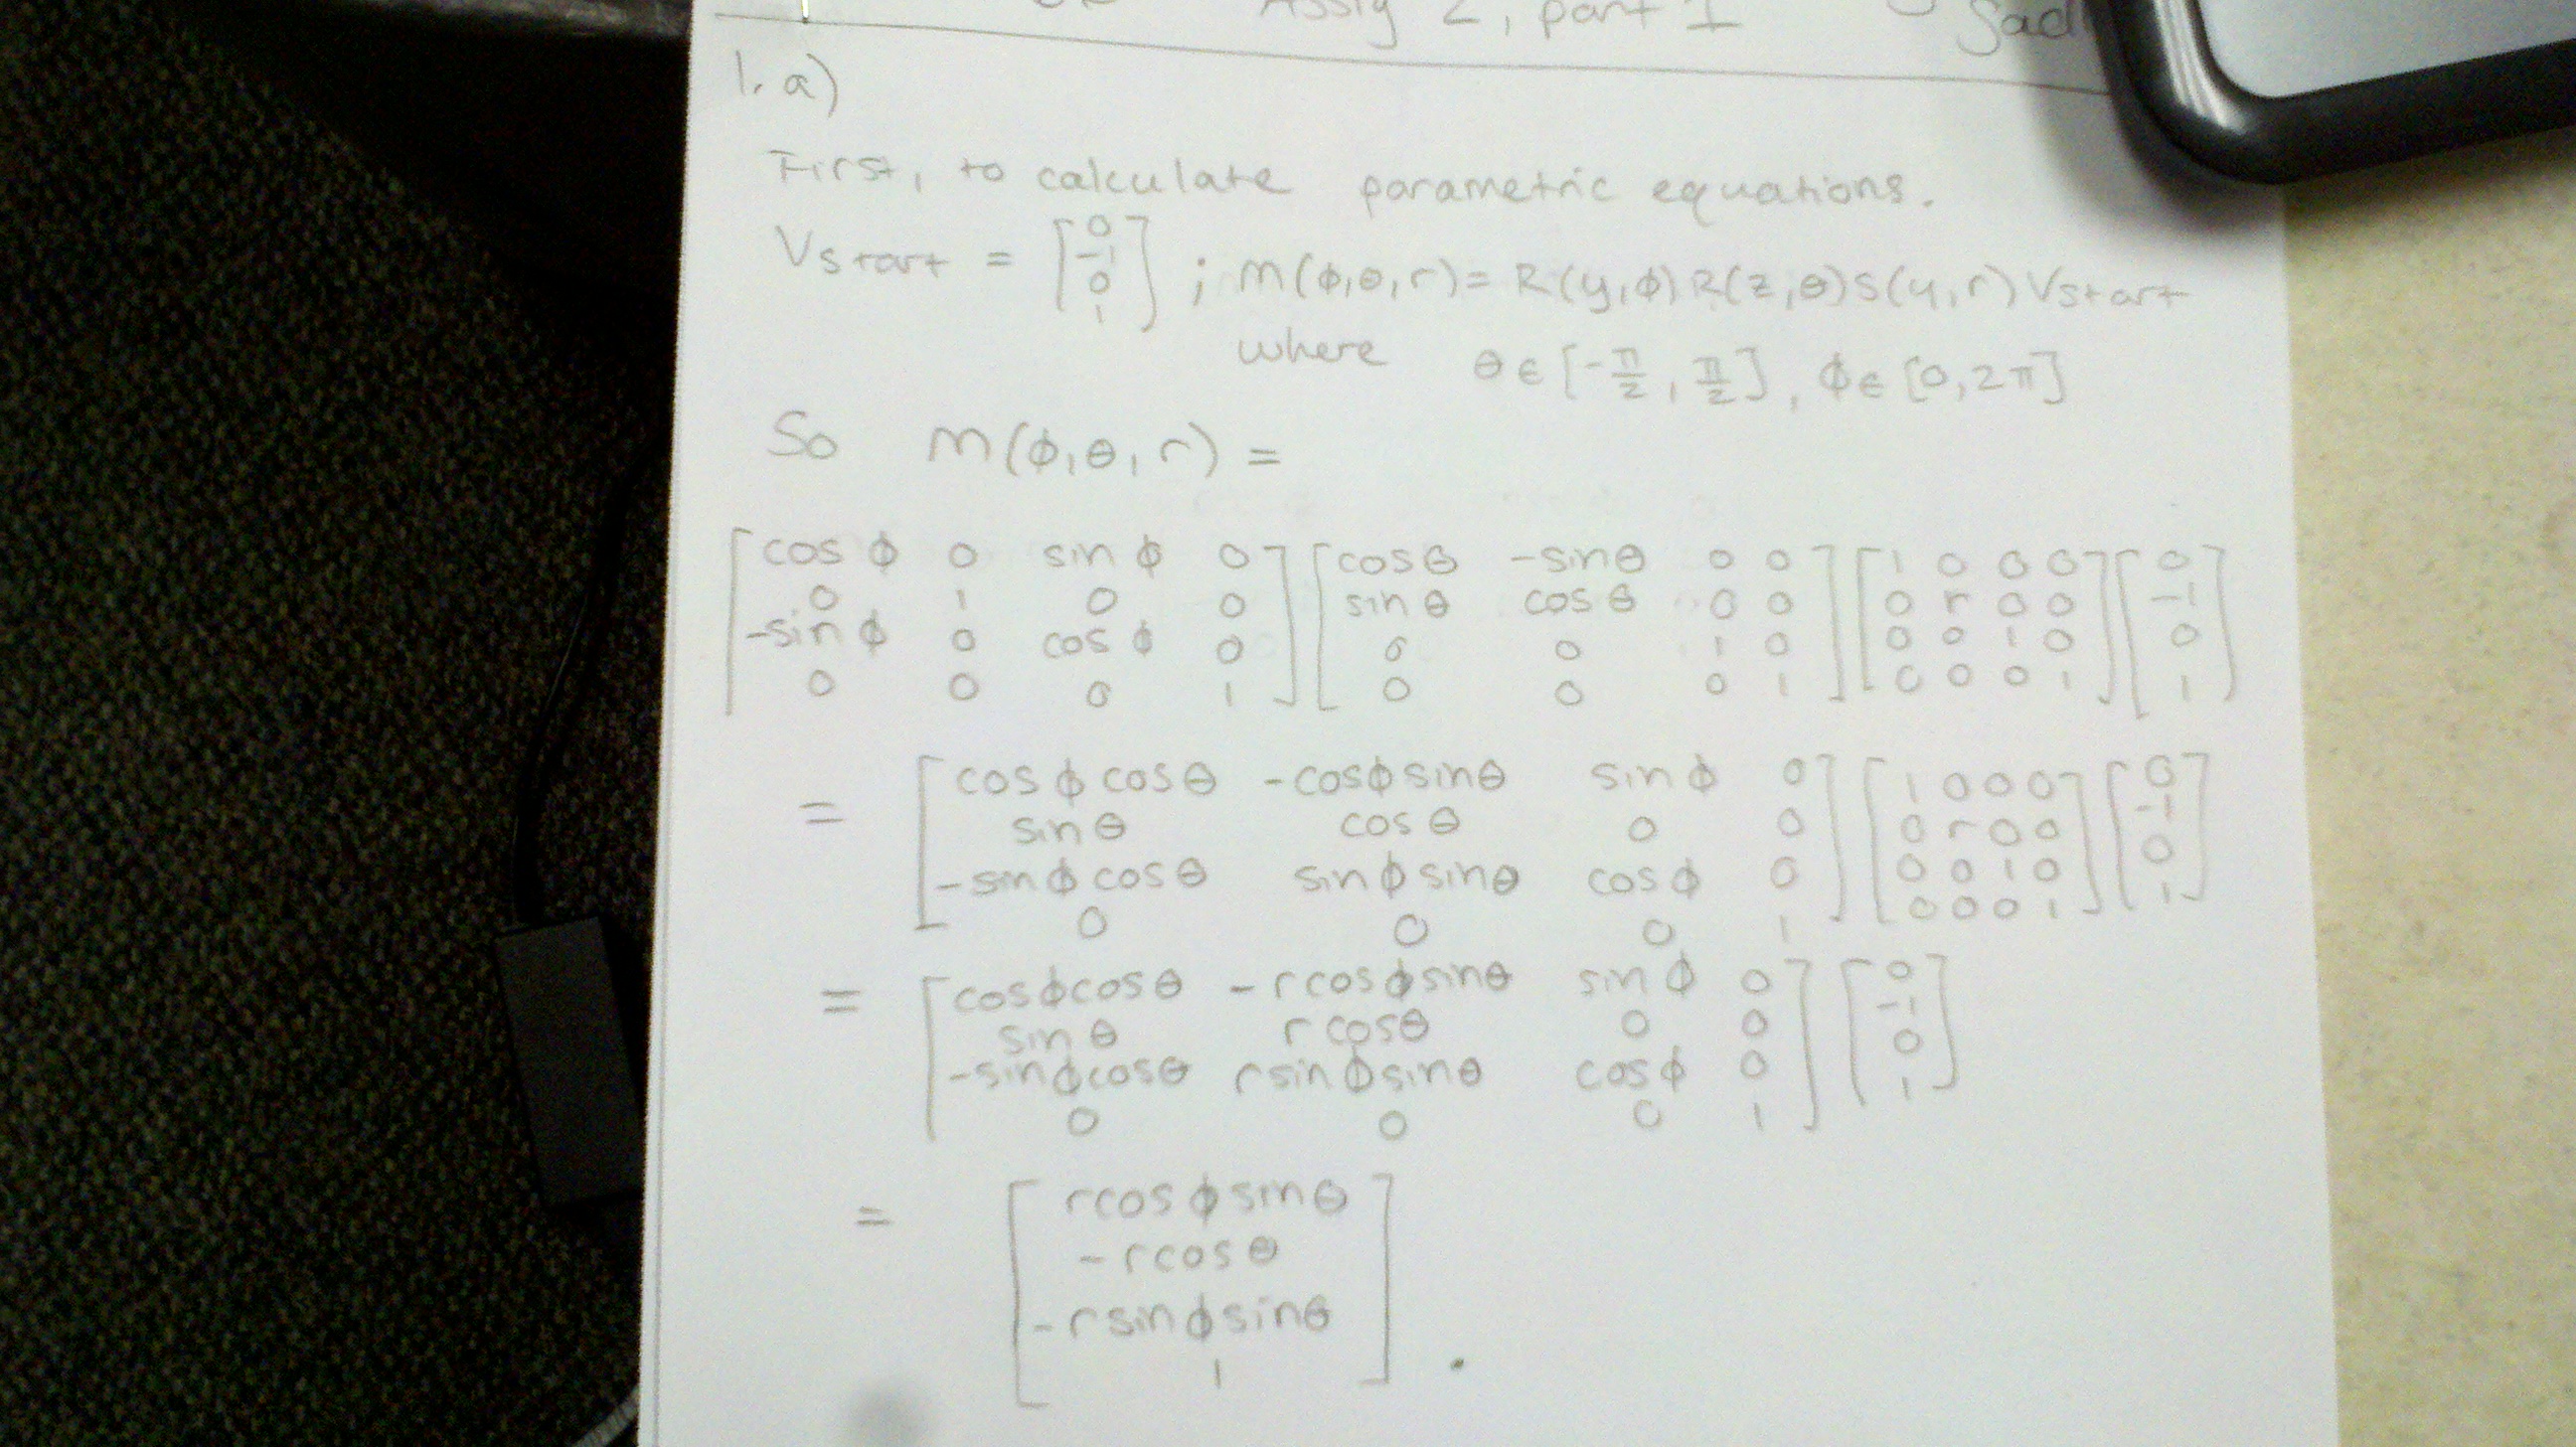 Assig 2, part 1
1. a)
First, to calculate parametric equations.
Vstart = [0 -1 0 1] ; M(ϕ,θ,r) = R(y,ϕ) R(z,θ) S(y,r) Vstart
where θ ∈ [-π/2, π/2], ϕ ∈ [0, 2π]
So M(ϕ,θ,r) =
[cos ϕ 0 sin ϕ 0] [cosθ -sinθ 0 0] [1 0 0 0] [0]
[0 1 0 0] [sin θ cos θ 0 0] [0 r 0 0] [-1]
[-sin ϕ 0 cos ϕ 0] [0 0 1 0] [0 0 1 0] [0]
[0 0 0 1] [0 0 0 1] [0 0 0 1] [1]
= [cos ϕ cos θ -cosϕ sinθ sin ϕ 0] [1 0 0 0] [0]
[sin θ cos θ 0 0] [0 r 0 0] [-1]
[-sin ϕ cos θ sin ϕ sinθ cos ϕ 0] [0 0 1 0] [0]
[0 0 0 1] [0 0 0 1] [1]
= [cosϕcosθ -rcosϕsinθ sin ϕ 0] [0]
[sin θ r cosθ 0 0] [-1]
[-sinϕcosθ rsinϕsinθ cos ϕ 0] [0]
[0 0 0 1] [1]
= [rcos ϕ sinθ]
[-rcosθ]
[-rsinϕsinθ]
[1] .